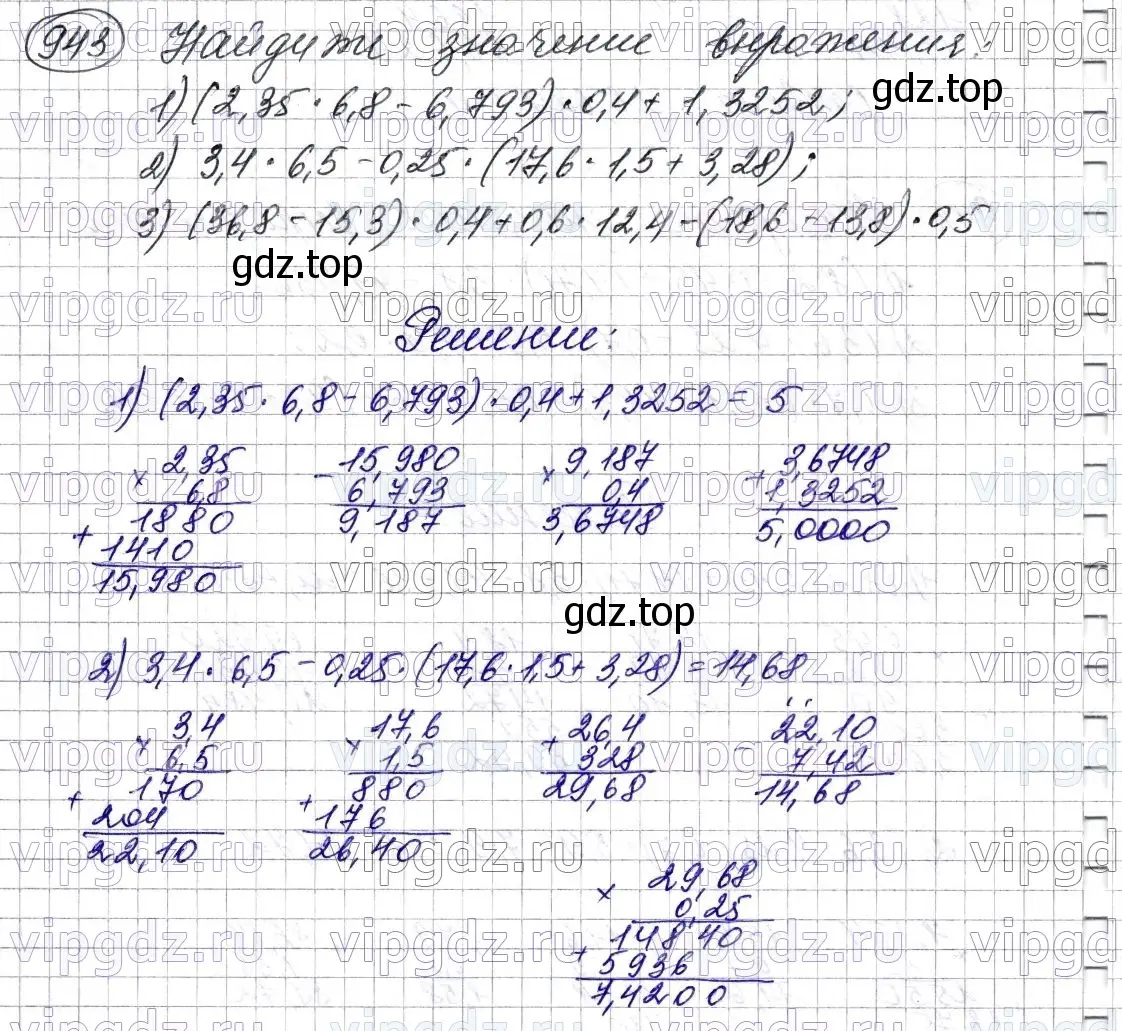 943 Найдите значение выражения:
1) (2,35 · 6,8 - 6,793) · 0,4 + 1,3252;
gdz.top
2) 3,4 · 6,5 - 0,25 · (17,6 · 1,5 + 3,28);
3) (36,8 - 15,3) · 0,4 + 0,6 · 12,4 - (18,6 - 13,8) · 0,5
gdz.top
Решение:
1) (2,35 · 6,8 - 6,793) · 0,4 + 1,3252 = 5
× 2,35
6,8
1880
+ 1410
15,980
- 15,980
6,793
9,187
× 9,187
0,4
3,6748
+ 3,6748
1,3252
5,0000
gdz.top
2) 3,4 · 6,5 - 0,25 · (17,6 · 1,5 + 3,28) = 14,68
× 3,4
6,5
170
+ 204
22,10
× 17,6
1,5
880
+ 176
26,40
+ 26,4
328
29,68
- 22,10
7,42
14,68
× 29,68
0,25
148 40
+ 5936
7,4200
vipgdz.ru